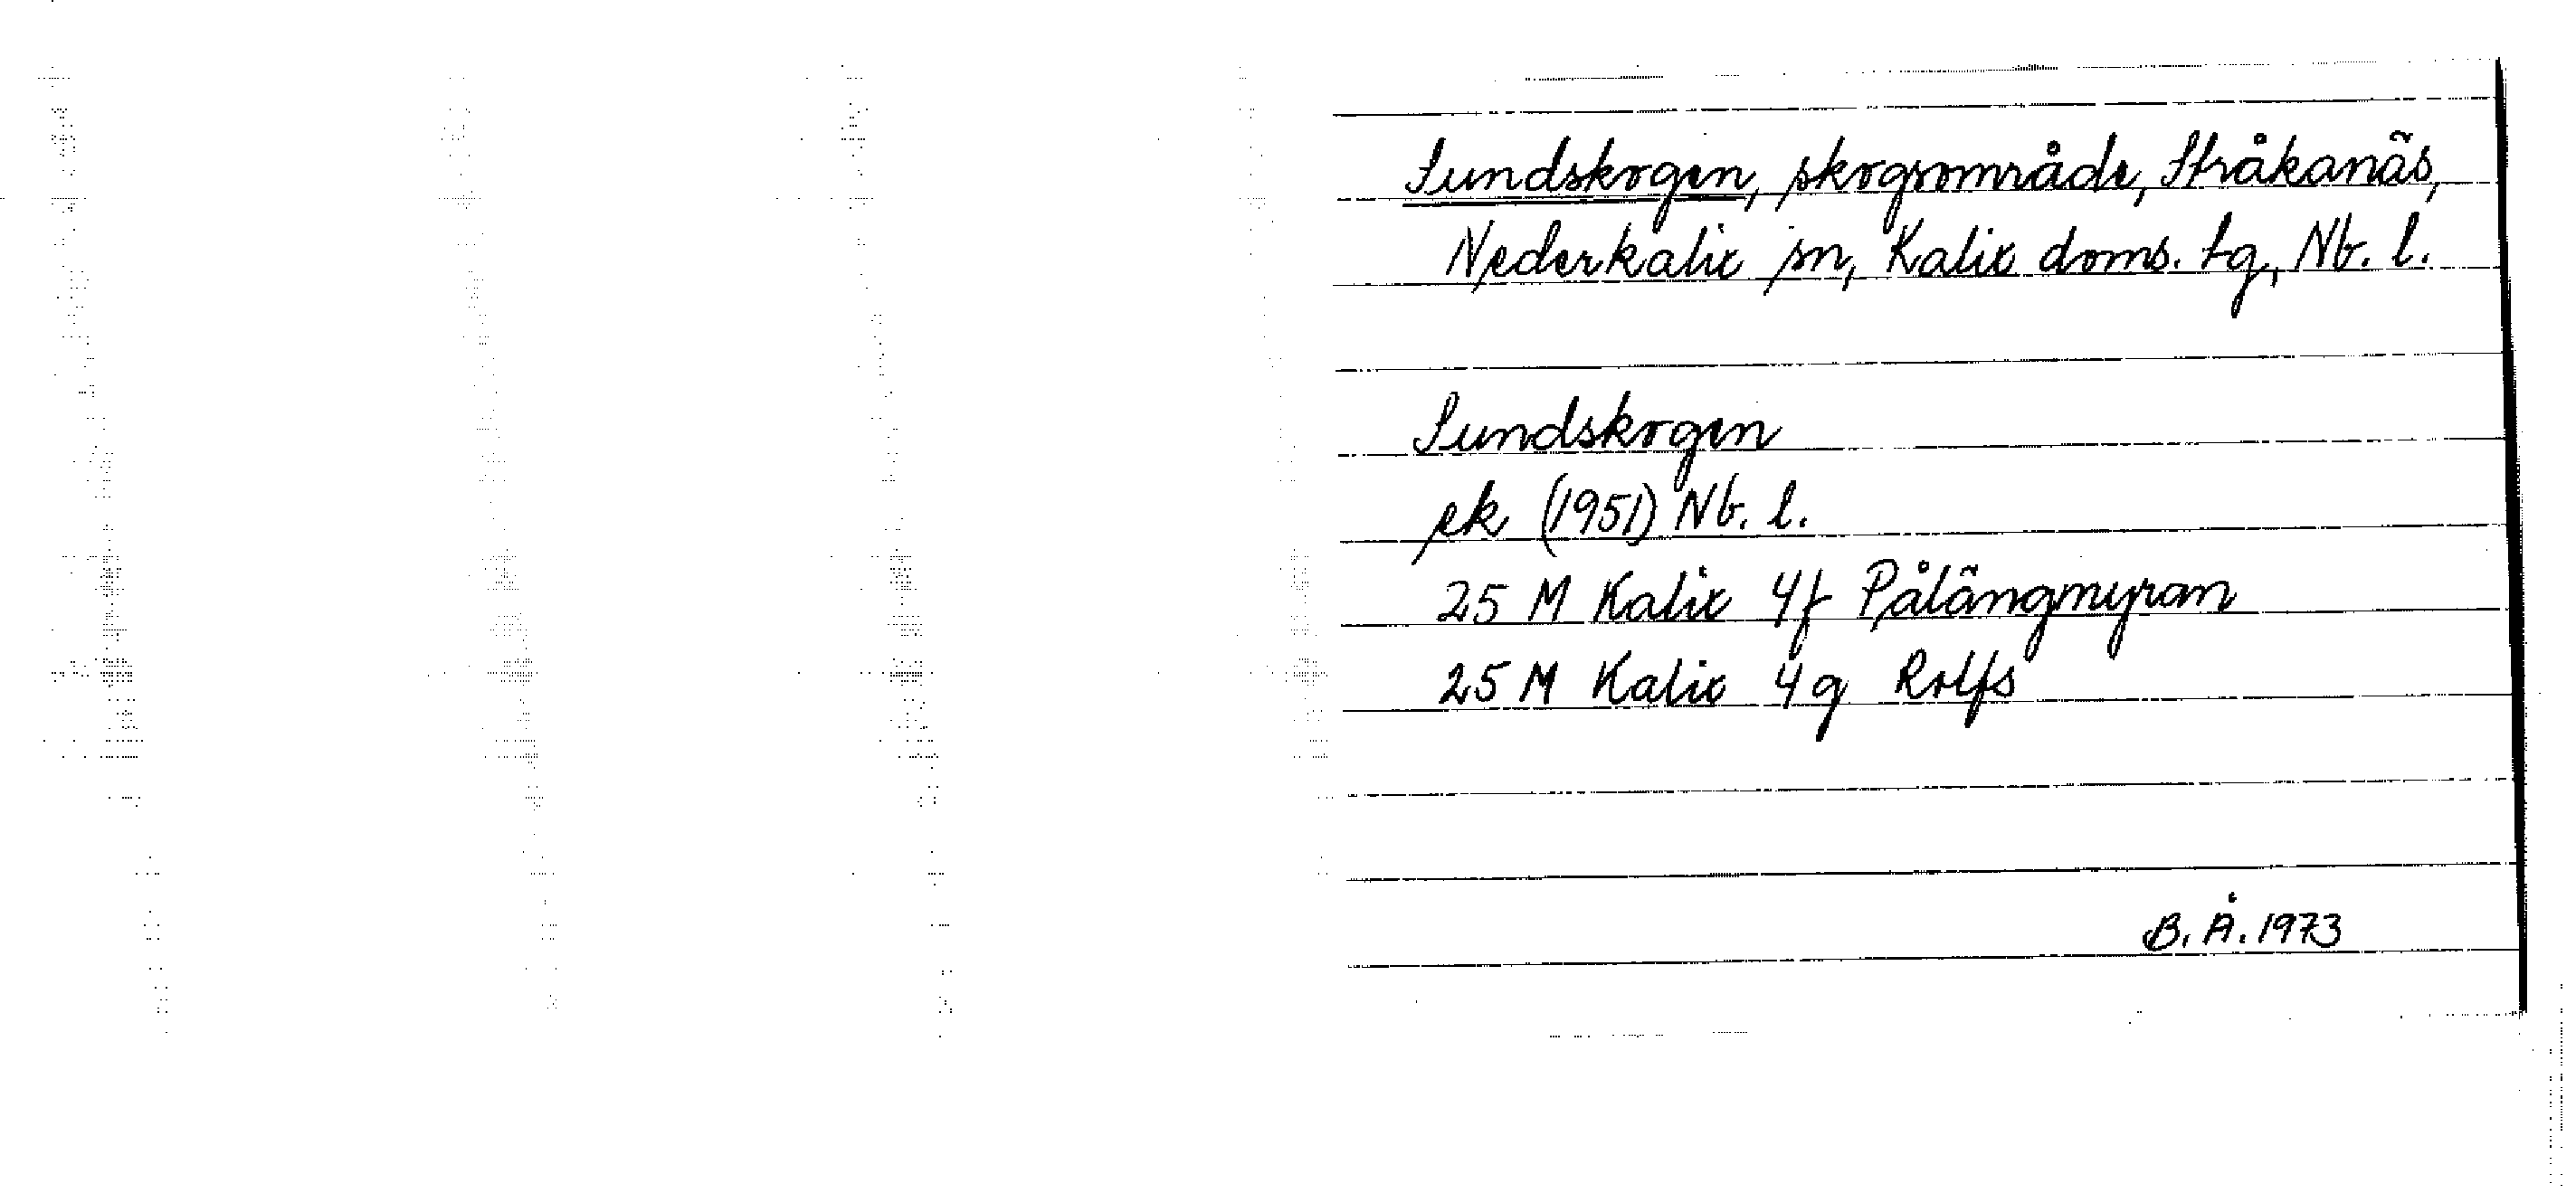 Sundskogen, skogsområde, Stråkanäs,
Nederkalix sn, Kalix doms. tg, Nb. l.
Sundskogen
ek (1951) Nb. l.
25 M Kalix 4f Pålängmyran
25 M Kalix 4g Rolfs
B. Å. 1973